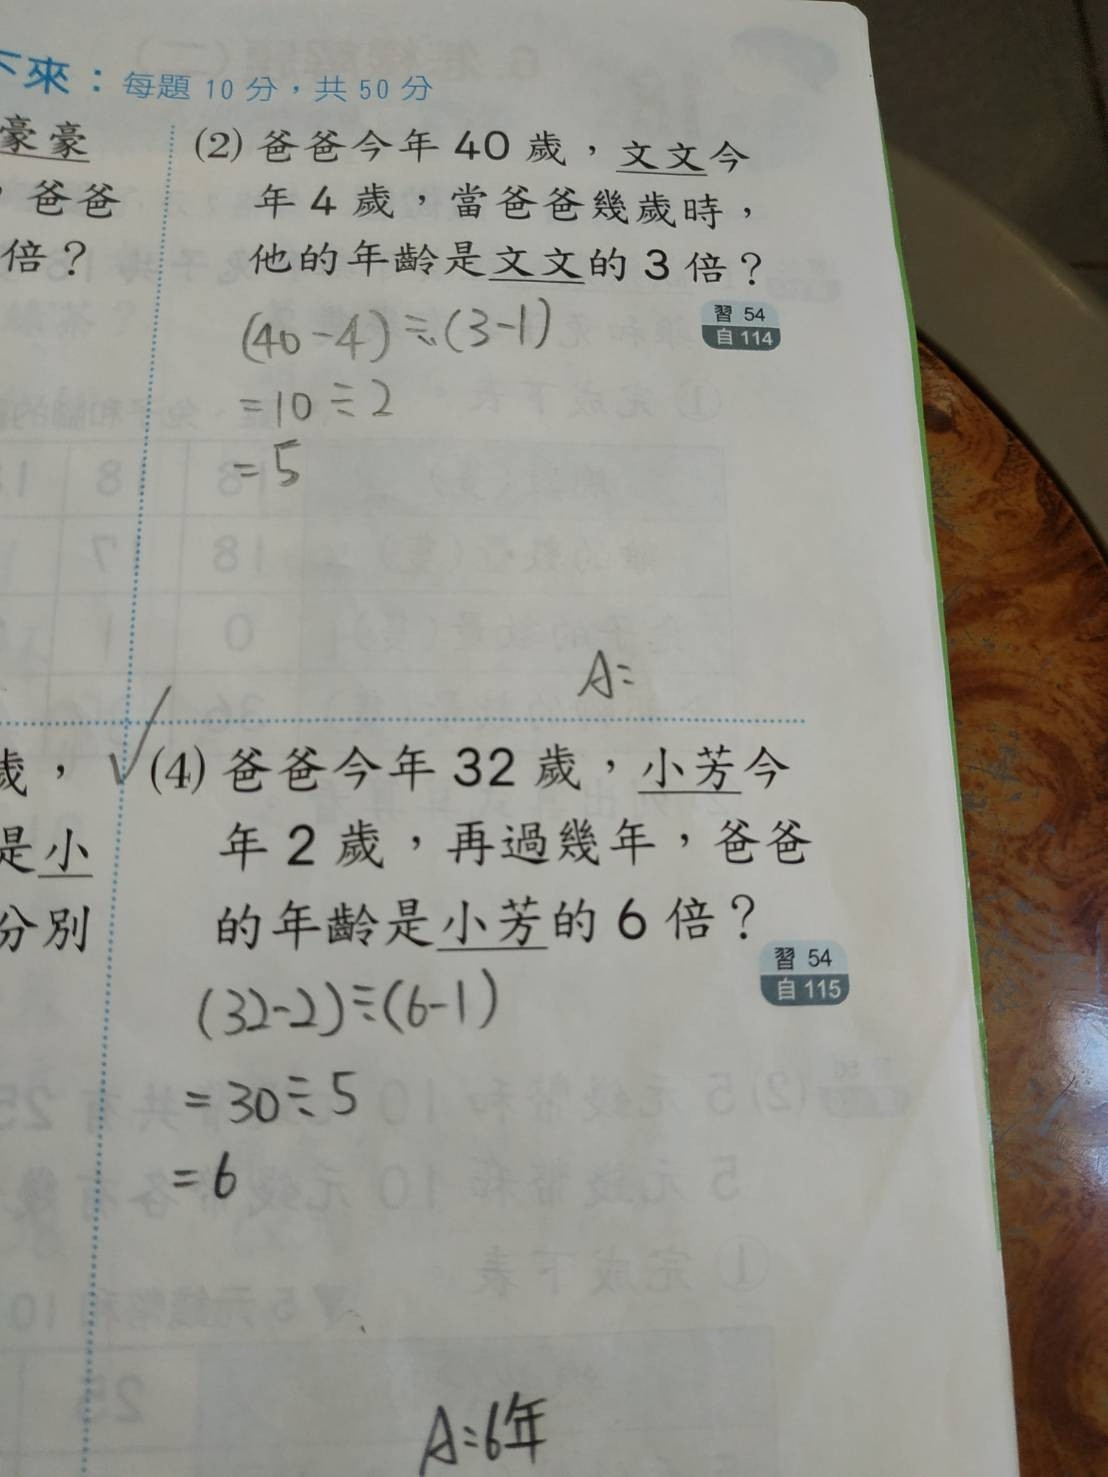 下來：每題 10 分，共 50 分
豪豪
，爸爸
倍？
(2) 爸爸今年 40 歲，文文今
年 4 歲，當爸爸幾歲時，
他的年齡是文文的 3 倍？
習 54
自 114
(40-4)÷(3-1)
=10÷2
=5
A=
歲，
是小
分別
(4) 爸爸今年 32 歲，小芳今
年 2 歲，再過幾年，爸爸
的年齡是小芳的 6 倍？
習 54
自 115
(32-2)÷(6-1)
=30÷5
=6
A=6年